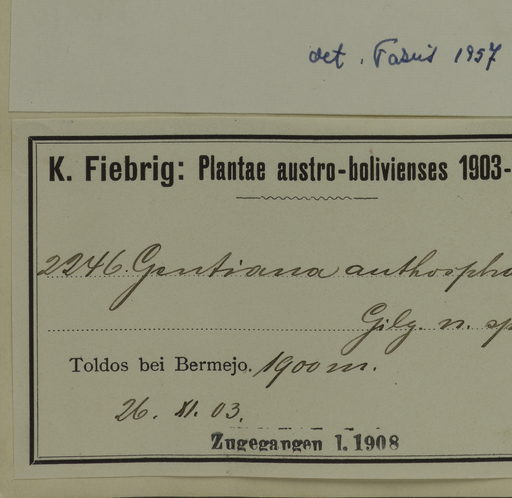 det. Fabris 1957
K. Fiebrig: Plantae austro-bolivienses 1903-
2246. Gentiana anthospha
Gilg. n. sp
Toldos bei Bermejo. 1900 m.
26. XI. 03.
Zugegangen 1.1908